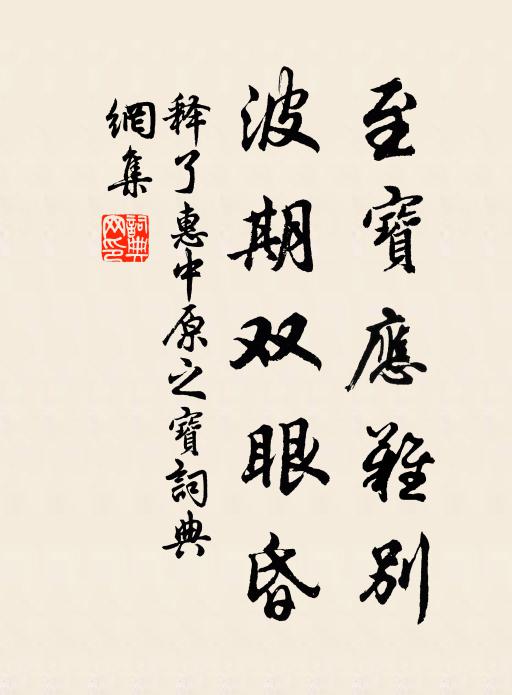 至寶應難別
波期双眼昏
释了惠中原之寶詞典
網集
詞典
网印